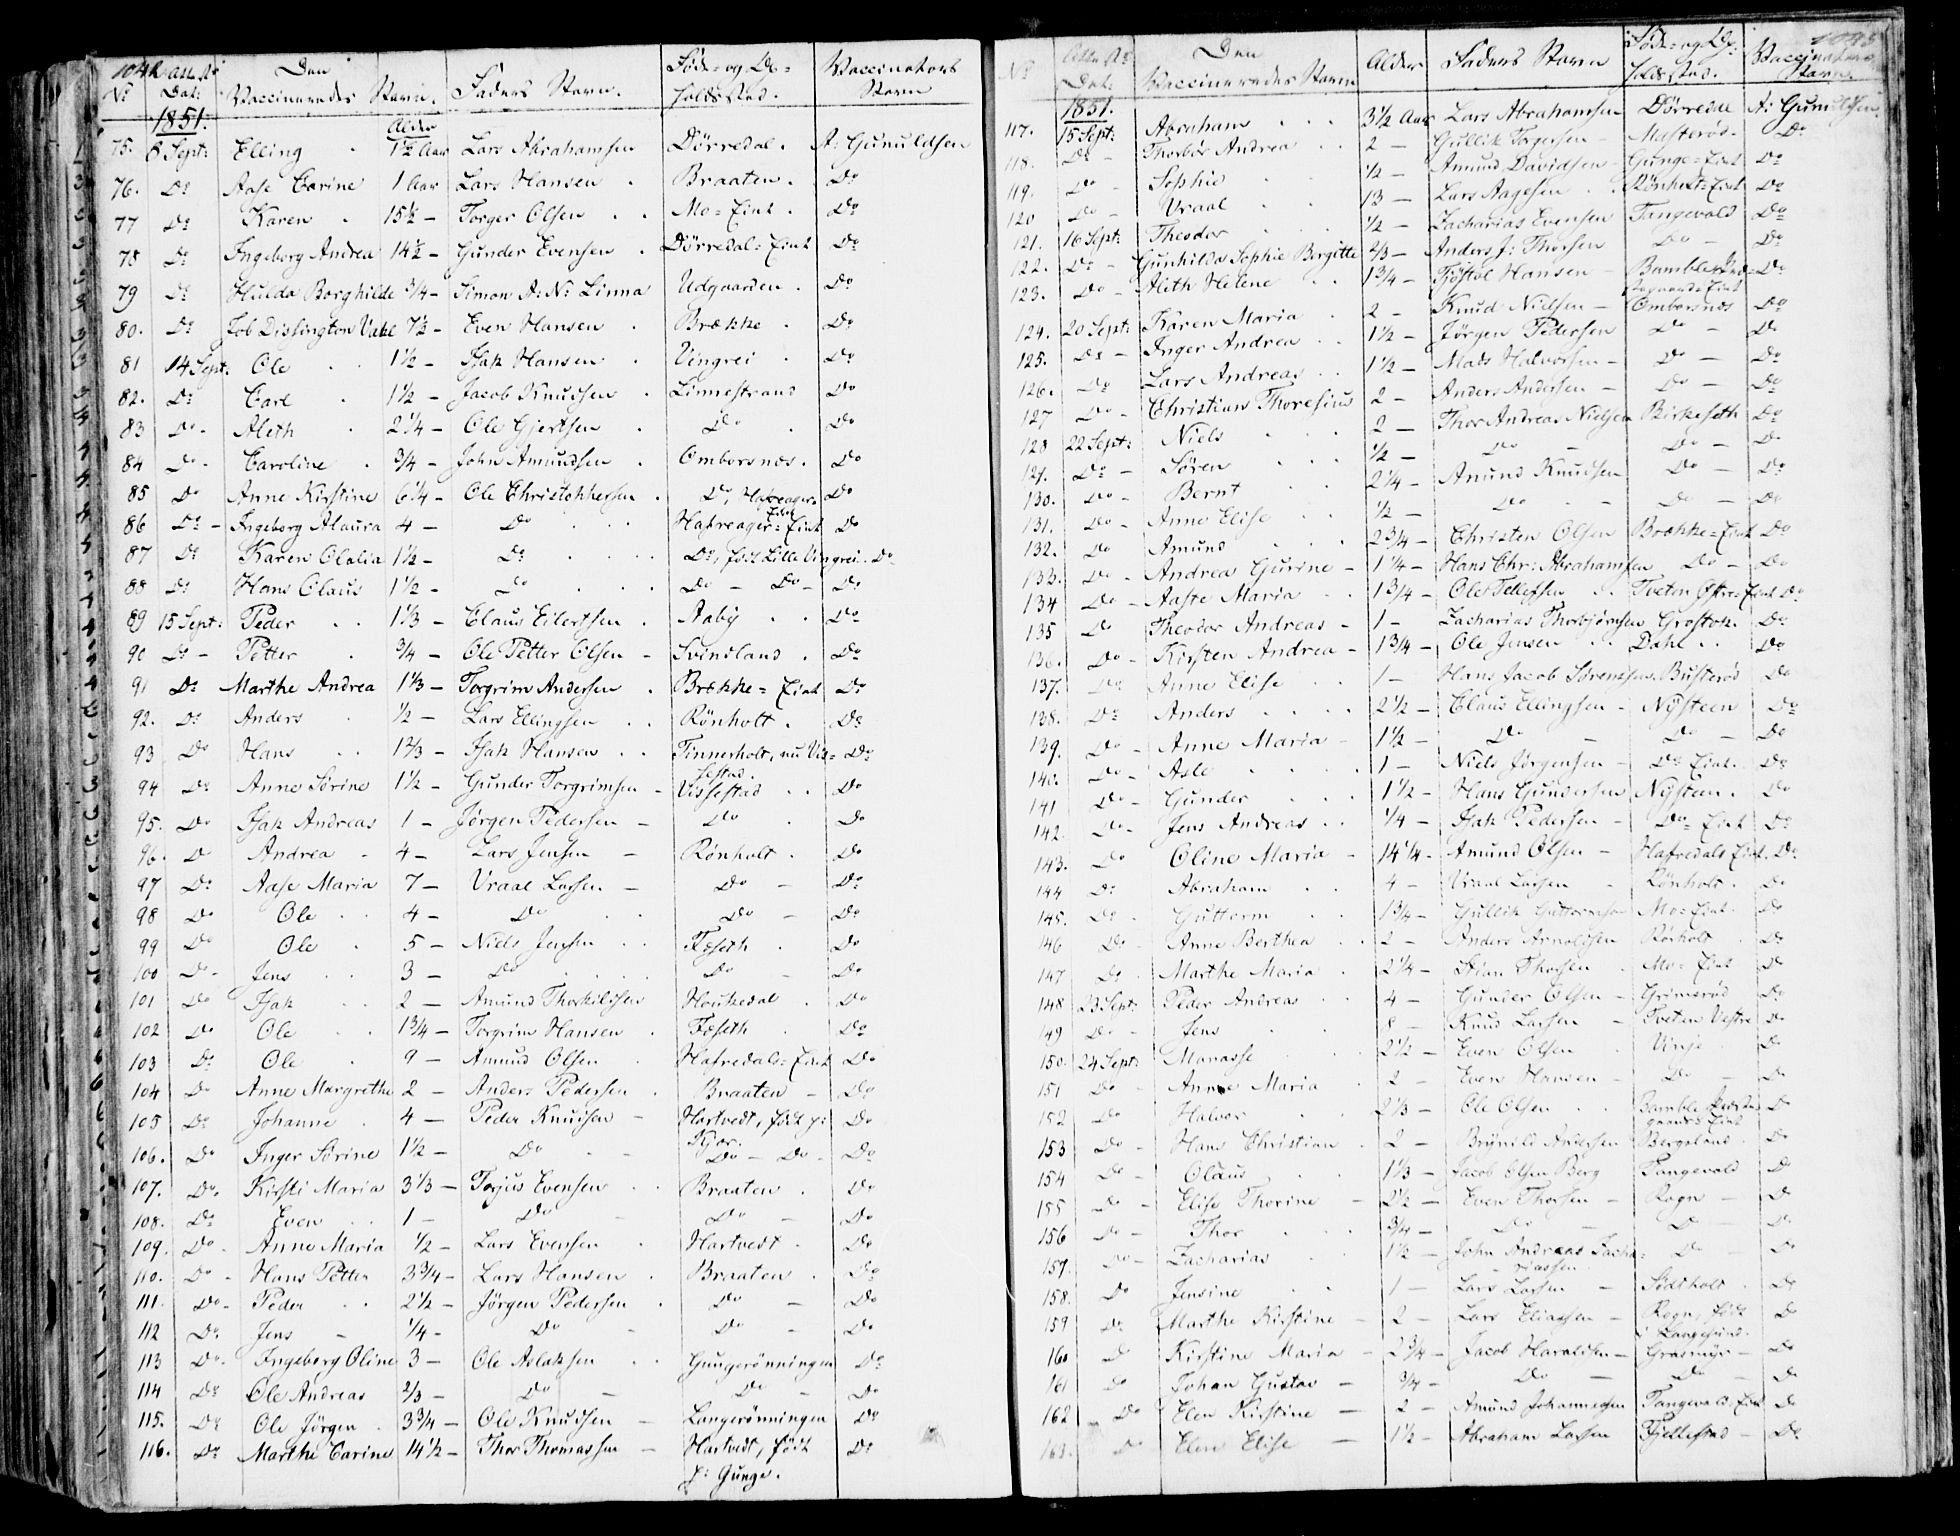 1042 Att. No Den Føde- og Op- Vaccinators
No Dat: Vaccineredes Navn. Faders Navn. holdssted. Navn
1851. Alder
75. 8 Sept: Elling 1½ Aar Lars Abrahamsen Dørredal. A: Gunuldsen
76. Do Aase Carine 1 Aar Lars Hansen Braaten. Do
77 Do Karen 15½ – Torger Olsen Mo-Eiet. Do
78 Do Ingeborg Andrea 14½ – Gunder Evensen Dørredal-Eiet Do
79 Do Hulda Borghilde ¾ – Simon A: N: Linna Udgaarden. Do
80. Do Job Dislington Vahl 7½ – Even Hansen Brække Do
81 14 Sept: Ole 1½ – Isak Hansen Vingrei Do
82. Do Carl 1½ – Jacob Knudsen Linnestrand Do
83 Do Aleth 2¼ – Ole Gjertsen Do Do
84 Do Caroline ¾ – John Amundsen Omborsnes. Do
85 Do Anne Kirstine 6¼ – Ole Christophersen Do, Hafreager-Eiet Do
86 Do Ingeborg Alaura 4 – Do Hafreager-Eiet Do
87 Do Karen Olalia 1½ – Do Do, født Lille Vingrei. Do
88 Do Hans Claus 1½ – Do Do – Do – Do
89 15 Sept: Peder 1⅓ – Claus Eilertsen Aaby Do
90 Do – Petter ¾ – Ole Petter Olsen – Svindland Do
91 Do Marthe Andrea 1⅓ – Torgrim Andersen Brække-Eiet Do
92. Do Anders ½ – Lars Ellingsen Rönholt. Do
93 Do Hans 1⅔ – Isak Hansen Tinnerholt, nu Vis- Do
sestad.
94 Do Anne Sørine 1½ – Gunder Torgrimsen – Vissestad Do
95. Do Isak Andreas 1 – Jørgen Pedersen – Do Do
96. Do Andrea 4 – Lars Jensen – Rönholt Do
97 Do Aase Maria 7 – Vraal Larsen – Do – Do
98 Do Ole 4 – Do Do – Do
99 Do Ole 5 – Niels Jensen Fæseth. Do
100 Do Jens 3 – Do Do – Do
101 Do Isak 2 – Amund Thorkildsen Houkedal Do
102 Do Ole 1¾ – Torgrim Hansen Fæseth Do
103 Do Ole 9 – Amund Olsen Hafredals-Eiet Do
104 Do Anne Margrethe 2 – Anders Pedersen Braaten – Do
105 Do Johanne 4 – Peder Knudsen – Hartvedt, født p: Do
Kjør.
106. Do Inger Sørine 1½ – Do Do – Do – Do
107. Do Kirsti Maria 3⅓ – Torjus Evensen Braaten. Do
108. Do Even 1 – Do Do – Do
109. Do Anne Maria ½ – Lars Evensen Hartvedt. Do
110. Do Hans Petter 3¾ – Lars Hansen Braaten. Do
111. Do Peder 2½ – Jørgen Pedersen Do – Do
112 Do Jens ¼ – Do Do – Do
113 Do Ingeborg Oline 3 – Ole Aslaksen Gungerönningen Do
114 Do Ole Andreas ⅔ – Do Do – Do
115. Do Ole Jørgen 3¾ – Ole Knudsen Langerönningen Do
116. Do Marthe Carine 14½ – Thor Thomassen – Hartvedt, født Do
p: Gunge.
1043
No Att. No Den Alder Faders Navn Føde- og Op- Vaccinators
Dat: Vaccineredes Navn holdssted. Navn.
1851.
117. 15 Sept: Abraham 3½ Aar Lars Abrahamsen Dørredal A: Gunuldsen
118. Do – Thorbør Andrea 2 – Gullik Torgersen Masterød Do
119. Do – Sophie ½ – Amund Davidsen Gunge-Eiet Do
120 Do – Vraal 13 – Lars Aagesen Rönholt-Eiet Do
121. 16 Sept: Theodor ½ – Zacharias Evensen Tangevald Do
122. Do – Gunhilda Sophie Birgitte ⅔ – Anders J: Thorsen Do – Do
123. Do – Alith Helene 1¾ – Tjøstol Hansen – Bamble Do
124. 20 Sept: Karen Maria 2 – Knud Nielsen – Omborsnes Do
125. Do – Inger Andrea 1½ – Jørgen Pedersen Do – Do
126. Do Lars Andreas 1½ – Mads Halvorsen – Do – Do
127 Do – Christian Thoresius 2 – Anders Andersen – Do – Do
128 22 Sept: Niels 2 – Thor Andreas Nielsen Birkeseth Do
129. Do – Søren ½ – Do Do – Do
130. Do – Bernt 2¼ – Amund Knudsen Do – Do
131. Do – Anne Elise ½ – Do Do – Do
132. Do Amund 2¾ – Christen Olsen Brække-Eiet Do
133. Do – Andrea Gurine – 1¼ – Hans Chr: Abrahamsen Do – Do
134 Do – Aaste Maria 1¾ – Ole Tellefsen Tveten Østre-Eiet Do
135 Do Theodor Andreas – 1 – Zacharias Thorbjørnsen Grostok. Do
136. Do – Kirsten Andrea – 1¾ – Ole Jensen Dahl Do
137. Do Anne Elise 1 – Hans Jacob Sørensen. Busterød Do
138. Do Anders 2½ – Claus Ellingsen – Nysteen Do
139. Do – Anne Maria – 1½ – Do – Do – Do
140. Do – Asle 1 – Niels Jørgensen – Do Eiet. Do
141 Do – Gunder 1½ – Hans Gundersen Nysteen. Do
142 Do – Jens Andreas ¼ – Isak Pedersen – Do-Eiet Do
143. Do Oline Maria – 14¼ – Amund Olsen – Hafredals Eiet. Do
144 Do Abraham 4 – Vraal Larsen Rönholt. Do
145. Do Guttorm 1¾ – Gullik Guttormsen Mo-Eiet. Do
146 Do Anne Berthea 2 – Anders Arnoldsen Rörholt Do
147 Do Marthe Maria 2¼ – Stian Thorsen Mo-Eiet Do
148 23 Sept: Peder Andreas 4 – Gunder Olsen – Grimsrød Do
149 Do – Jens 8 – Knud Larsen – Tveten Vestre Do
150. 24 Sept: Manasse 2½ – Even Olsen Vinje Do
151 Do Anne Maria 2 – Even Hansen – Do – Do
152 Do Halvor 2⅓ – Ole Olsen Bamble Præste- Do
gaards Eiet
153 Do – Hans Christian 2 – Brynild Andersen Bergsland Do
154 Do Olaus 1⅓ – Jacob Olsen Berg Tangevald Do
155 Do – Elise Thorine – 2½ – Even Thorsen – Rogn – Do
156 Do – Thor ¾ – Do – Do – Do
157. Do – Zacharias 1½ – John Andreas Zacha- Do – Do
riassen
158. Do Jensine 1 – Lars Larsen – Stokholt Do
159 Do Marthe Kirstine – 2 – Lars Eliassen – Rogn, født Do
i Langesund.
160 Do Kirstine Maria – 2¾ – Jacob Haraldsen – Grasmyr – Do
161 Do Johan Gustav – ¾ – Do – Do – Do
162 Do Elen Kirstine – 2 – Amund Johannesen Tangevald-Eiet Do
163. Do Elen Elise – 1½ – Abraham Larsen Fjellestad – Do